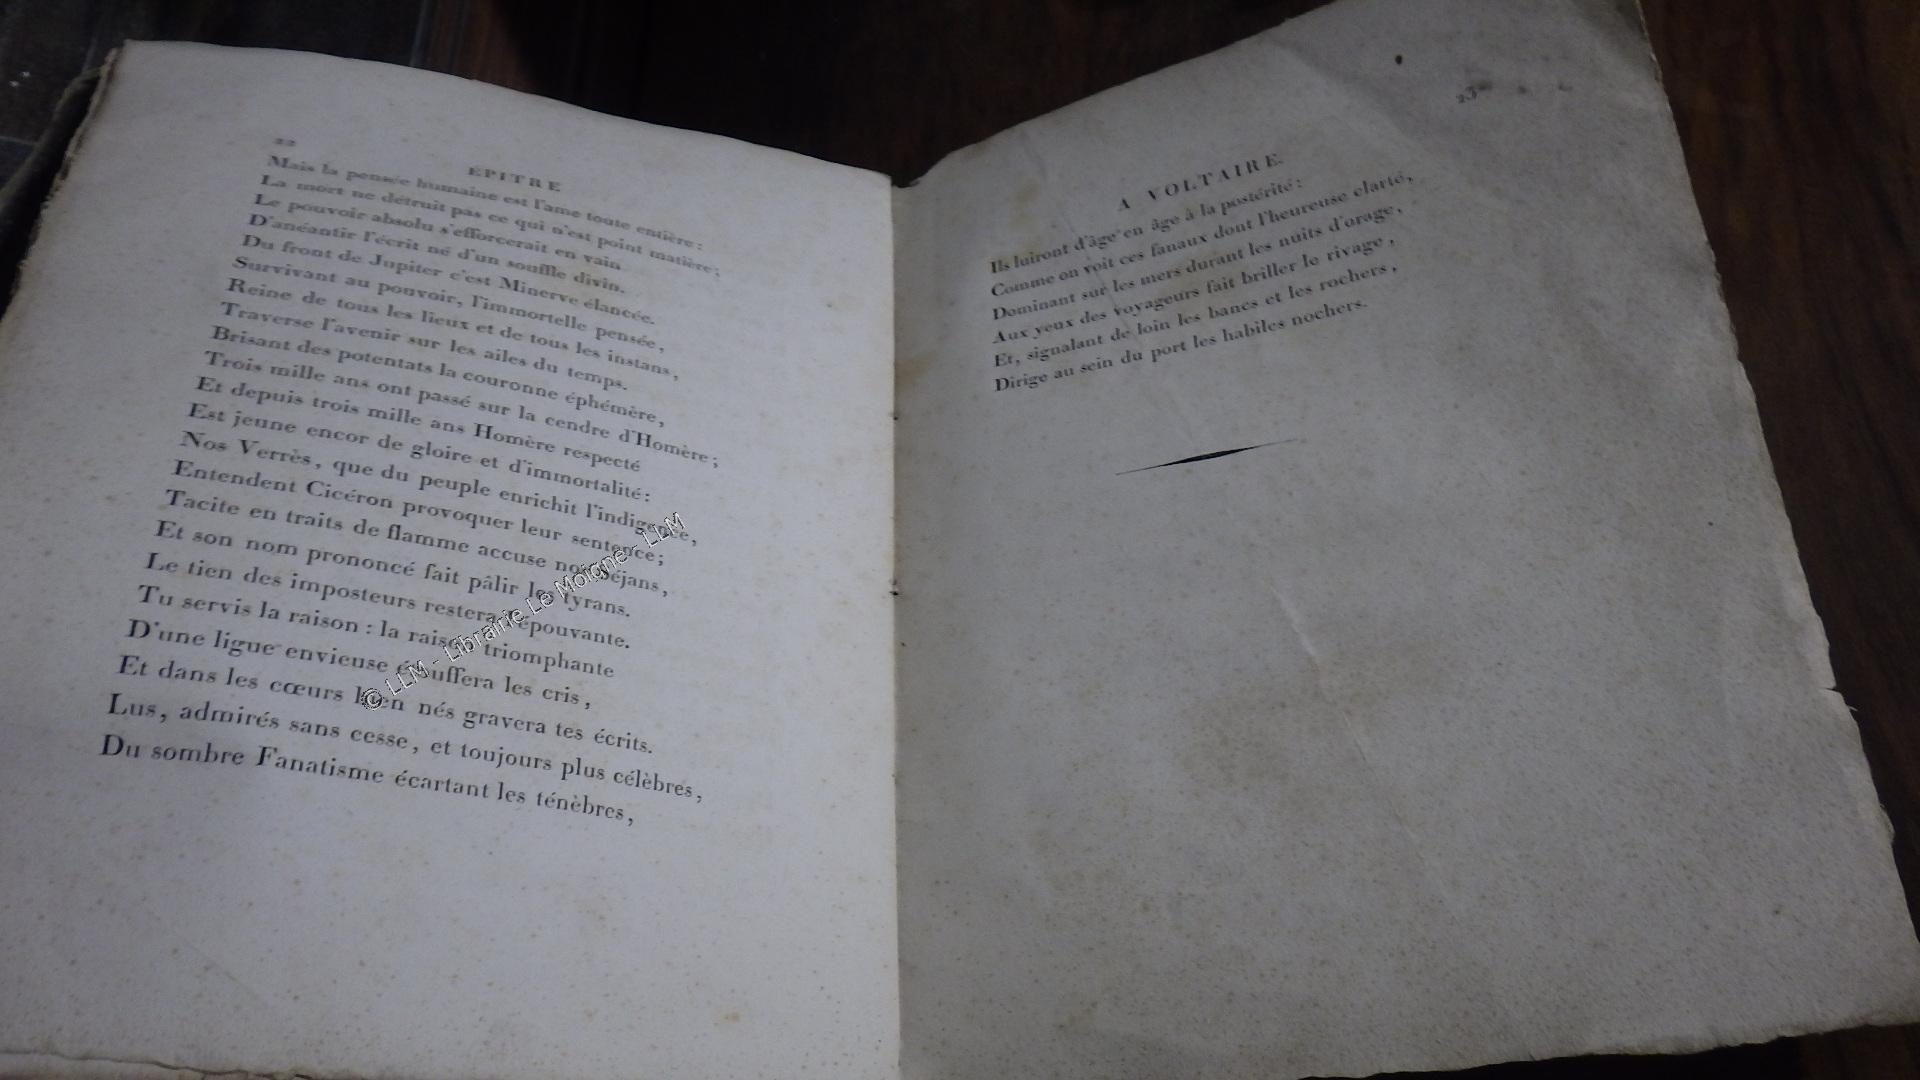 22
ÉPITRE
Mais la pensée humaine est l'ame toute entière :
La mort ne détruit pas ce qui n'est point matière ;
Le pouvoir absolu s'efforcerait en vain
D'anéantir l'écrit né d'un souffle divin.
Du front de Jupiter c'est Minerve élancée.
Survivant au pouvoir, l'immortelle pensée,
Reine de tous les lieux et de tous les instans,
Traverse l'avenir sur les ailes du temps.
Brisant des potentats la couronne éphémère,
Trois mille ans ont passé sur la cendre d'Homère ;
Et depuis trois mille ans Homère respecté
Est jeune encor de gloire et d'immortalité :
Nos Verrès, que du peuple enrichit l'indigence,
Entendent Cicéron provoquer leur sentence ;
Tacite en traits de flamme accuse nos Séjans,
Et son nom prononcé fait pâlir les tyrans.
Le tien des imposteurs restera l'épouvante.
Tu servis la raison : la raison triomphante
D'une ligue envieuse étouffera les cris,
Et dans les cœurs bien nés gravera tes écrits.
Lus, admirés sans cesse, et toujours plus célèbres,
Du sombre Fanatisme écartant les ténèbres,
© LLM - Librairie Le Moigne - LLM
23
A VOLTAIRE.
Ils luiront d'âge en âge à la postérité :
Comme on voit ces fanaux dont l'heureuse clarté,
Dominant sur les mers durant les nuits d'orage,
Aux yeux des voyageurs fait briller le rivage,
Et, signalant de loin les bancs et les rochers,
Dirige au sein du port les habiles nochers.